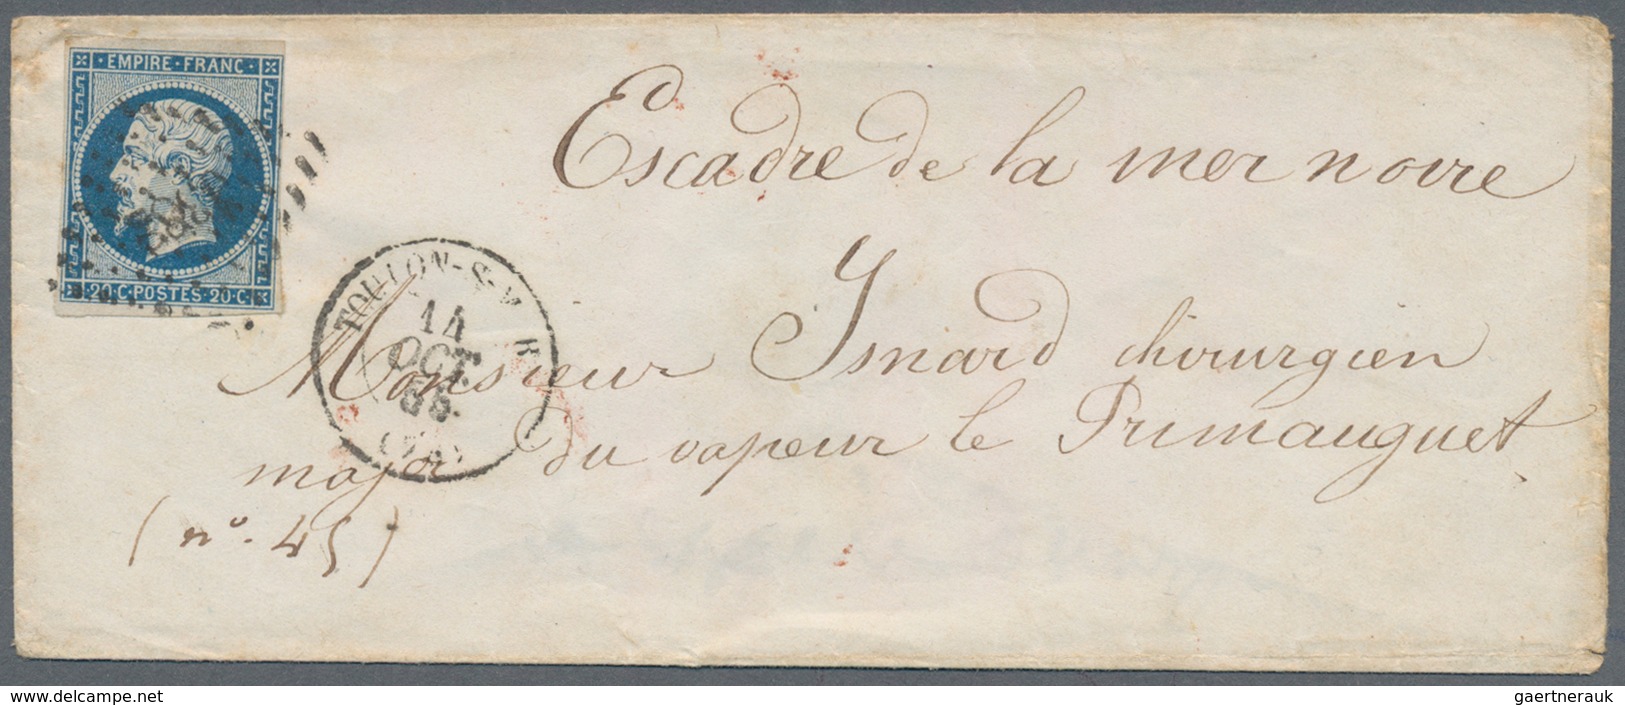 · EMPIRE · FRANC ·
· 20 · C · POSTES · 20 · C ·
TOULON-S-
14
OCT.
55
Escadre de la mer noire
Monsieur Isnard chirurgien
major du vapeur le Primauguet
(n.° 45)
www.delcampe.net
gaertnerauk